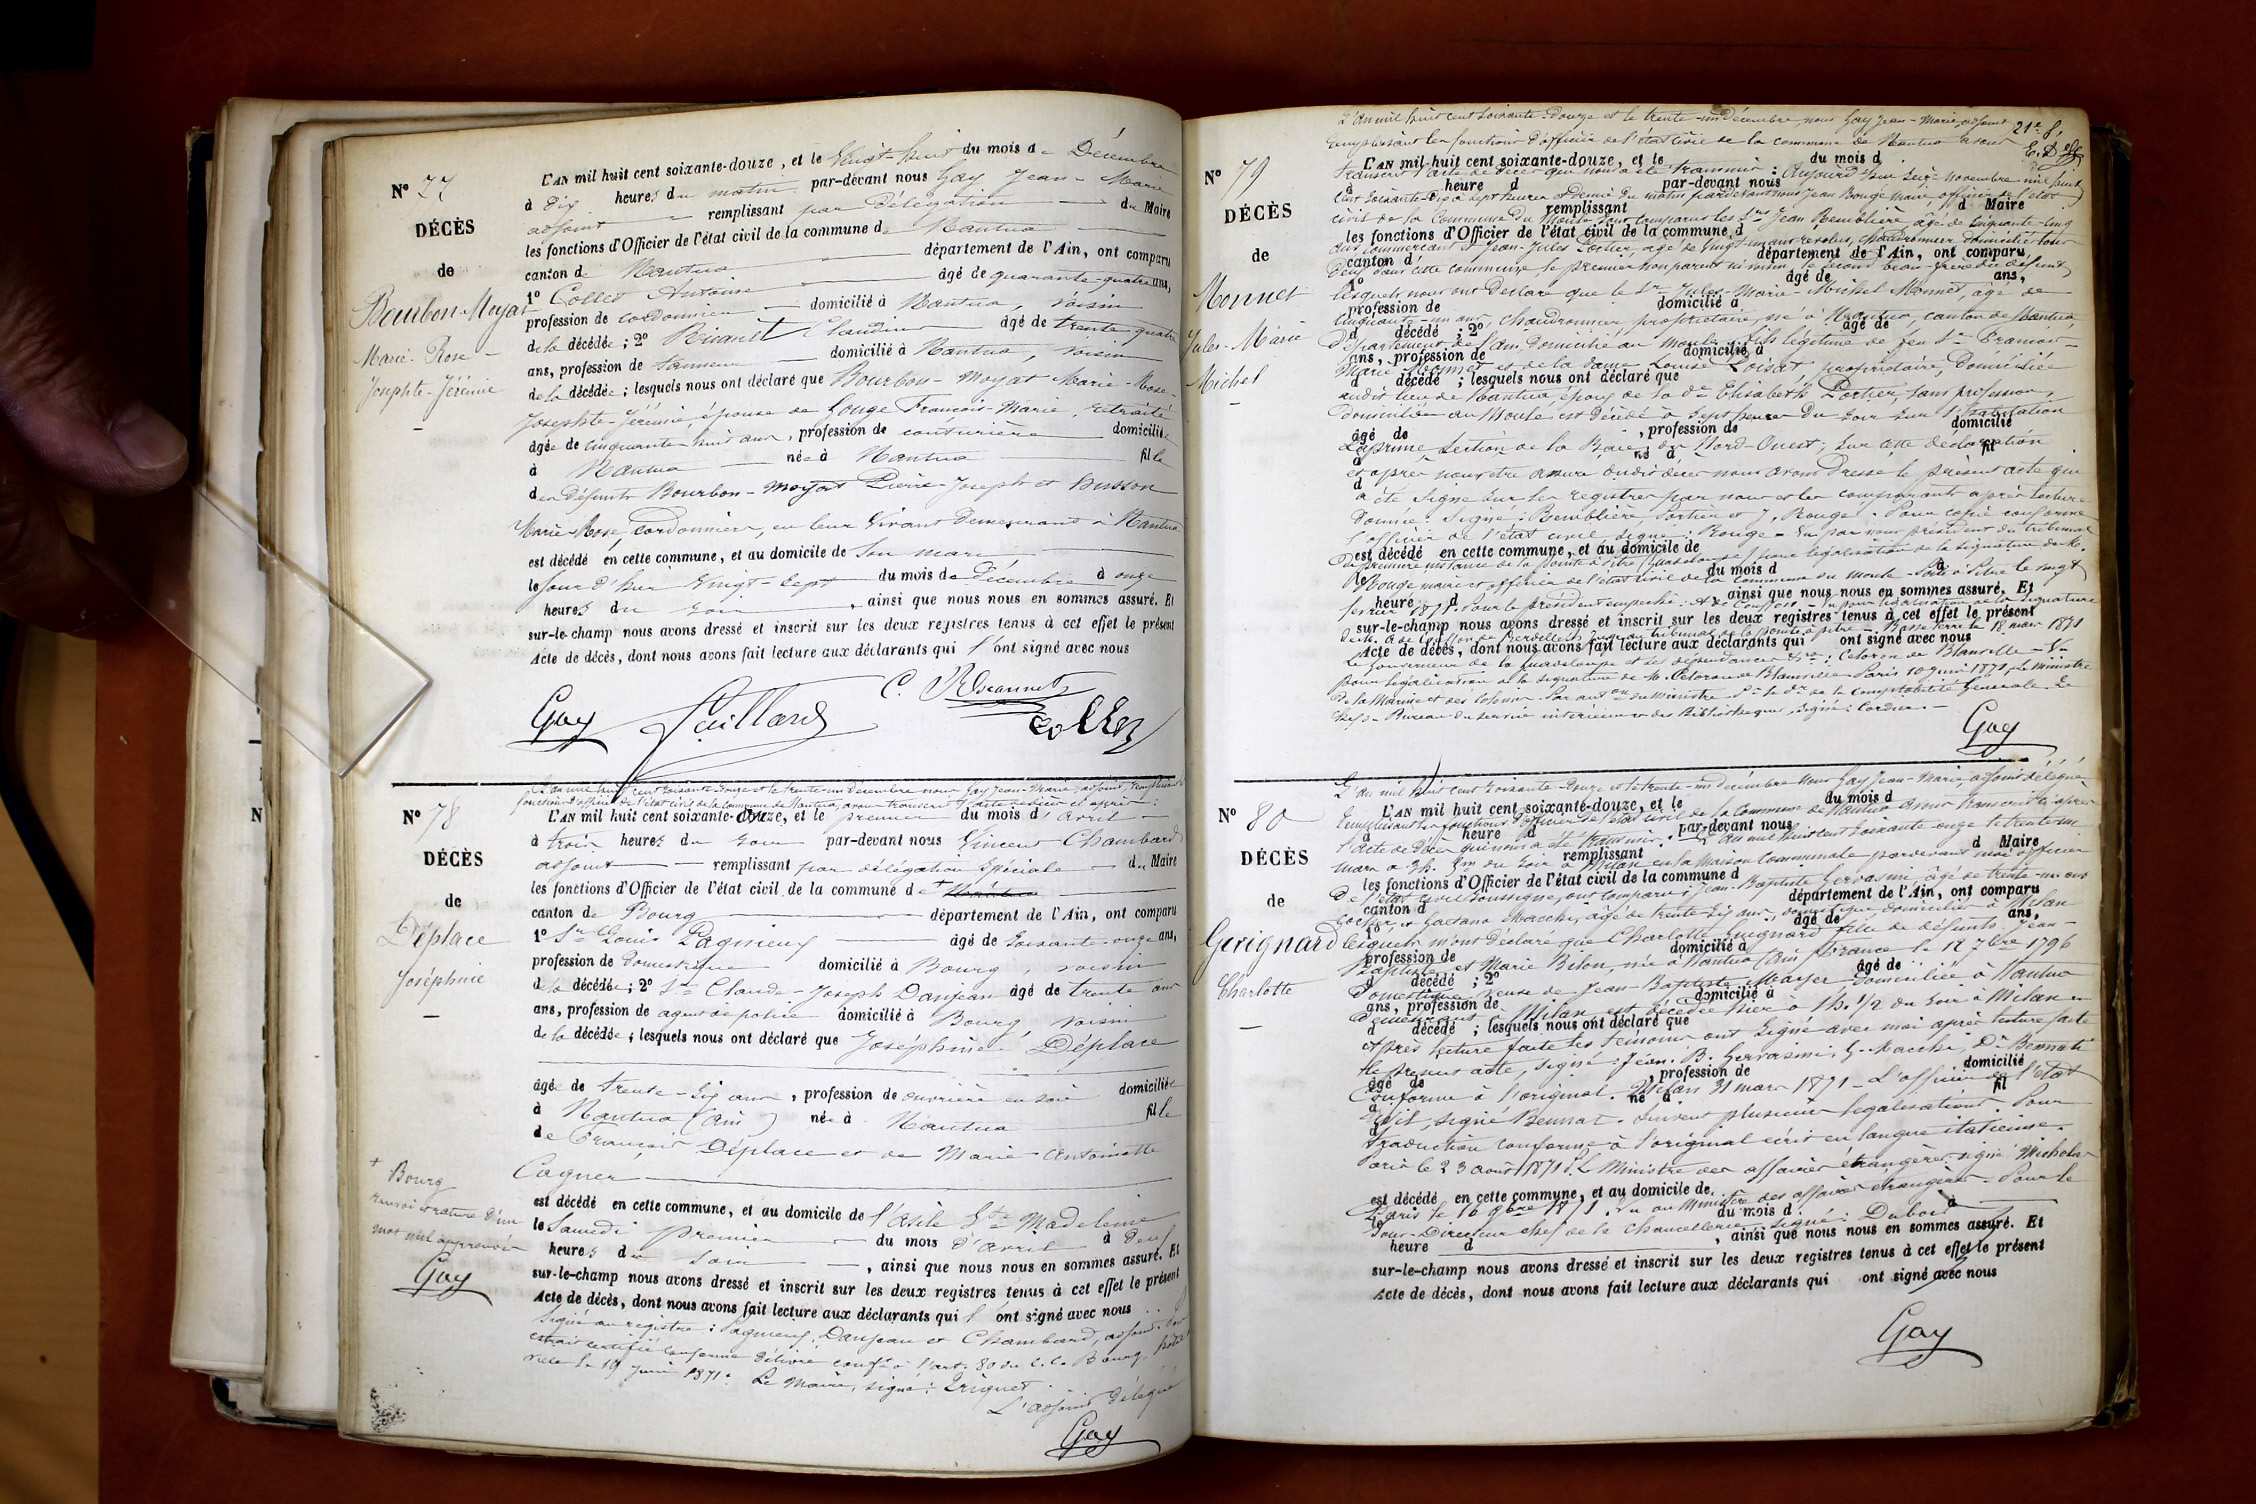 N° 77
DÉCÈS
de
Bourbon-Moyat
Marie-Rose-
Josephte-Jérémie
L'AN mil huit cent soixante-douze, et le Vingt-huit du mois de Décembre
à dix heures du matin par-devant nous Gay Jean-Marie
adjoint remplissant par délégation du Maire
les fonctions d'Officier de l'état civil de la commune de Nantua
canton de Nantua département de l'Ain, ont comparu
1° Collet Antoine âgé de quarante-quatre ans,
profession de cordonnier domicilié à Nantua, voisin
de la décédée ; 2° Claudius âgé de trente-quatre
ans, profession de tanneur domicilié à Nantua, voisin
de la décédée ; lesquels nous ont déclaré que Bourbon-Moyat Marie-Rose-
Josephte-Jérémie, épouse de Gouge François-Marie, retraité
âgée de cinquante-huit ans, profession de couturière domiciliée
à Nantua née à Nantua fille
des défunts Bourbon-Moyat Pierre-Joseph et Musson
Marie-Rose, cordonniers, en leur vivant demeurant à Nantua
est décédé en cette commune, et au domicile de son mari
le jour d'hier Vingt-sept du mois de décembre à onze
heures du soir, ainsi que nous nous en sommes assuré. Et
sur-le-champ nous avons dressé et inscrit sur les deux registres tenus à cet effet le présent
Acte de décès, dont nous avons fait lecture aux déclarants qui l'ont signé avec nous
Gay
Collet
N° 78
DÉCÈS
de
Déplace
Joséphine
L'an mil huit cent soixante-douze et le trente-un décembre nous Gay Jean-Marie, adjoint, remplissant les
fonctions d'officier de l'état civil de la commune de Nantua, avons transcrit l'acte de décès ci-après :
L'AN mil huit cent soixante-onze, et le premier du mois d'avril
à trois heures du soir par-devant nous Vincent Chambard
adjoint remplissant par délégation spéciale du Maire
les fonctions d'Officier de l'état civil de la commune de + Nantua
canton de Bourg département de l'Ain, ont comparu
1° Sr Louis Pagnieux âgé de soixante-onze ans,
profession de domestique domicilié à Bourg, voisin
de la décédée ; 2° Sr Claude-Joseph Danjean âgé de trente
ans, profession de agent de police domicilié à Bourg, voisin
de la décédée ; lesquels nous ont déclaré que Joséphine Déplace
âgée de trente-six ans, profession de ouvrière en soie domiciliée
à Nantua (Ain) née à Nantua fille
de François Déplace et de Marie-Antoinette
Cagner
est décédé en cette commune, et au domicile de l'asile Ste Madeleine
le samedi premier du mois d'avril à deux
heures du soir, ainsi que nous nous en sommes assuré. Et
sur-le-champ nous avons dressé et inscrit sur les deux registres tenus à cet effet le présent
Acte de décès, dont nous avons fait lecture aux déclarants qui l'ont signé avec nous
Signé au registre : Pagnieux, Danjean et Chambard, adjoint.
extrait certifié conforme délivré conft à l'art. 80 du C.C. Bourg, hôtel de
ville le 19 juin 1871. Le Maire, signé :
L'adjoint délégué
Gay
+ Bourg
renvoi et rature d'un
mot nul approuvés
Gay
N° 79
DÉCÈS
de
Monnet
Jules-Marie
Michel
L'an mil huit cent soixante-douze et le trente-un décembre, nous Gay Jean-Marie, adjoint
remplissant les fonctions d'officier de l'état civil de la commune de Nantua avons
transcrit l'acte de décès qui nous a été transmis : Aujourd'hui seize novembre mil huit
cent soixante-dix à sept heures et demie du matin pardevant nous Jean Rouge maire, officier de l'état
civil de la commune du Moule, sont comparus les Srs Jean Remblière, âgé de cinquante-cinq
ans commerçant et Jean-Jules Portier, âgé de vingt-un ans révolus, chaudronnier domiciliés tous
deux dans cette commune le premier non parent ni voisin, le second beau-frère du défunt
lesquels nous ont déclaré que le Sr Jules-Marie-Michel Monnet, âgé de
cinquante-un ans, chaudronnier, propriétaire, né à Nantua, canton de Nantua
département de l'Ain, domicilié au Moule, fils légitime de feu Sr François-
Marie Monnet et de la dame Louise Loisat propriétaire, domiciliée
audit lieu de Nantua, époux de la De Elisabeth Portier, sans profession,
domiciliée au Moule est décédé à sept heures du soir sur l'habitation
Laprune section de la Baie, du Nord-Ouest ; sur cette déclaration
et après nous être assuré dudit décès nous avons dressé le présent acte qui
a été signé sur les registres par nous et les comparants après lecture
donnée. Signé : Remblière, Portier et J. Rouge. Pour copie conforme
l'officier de l'état civil signé : Rouge - Vu par nous président du tribunal
de première instance de la Pointe à Pitre (Guadeloupe) pour légalisation de la signature de M.
Rouge maire et officier de l'état civil de la commune du Moule
février 1871. Pour le président empêché
Basse-terre le 18 mars 1871
Le Gouverneur de la Guadeloupe et ses dépendances
pour légalisation de la signature de M. Paris 10 juin 1871, Le Ministre
de la Marine et des Colonies
Chef du Bureau du service intérieur et des Bibliothèques, signé :
Gay
L'AN mil huit cent soixante-douze, et le du mois d
à heure d par-devant nous
remplissant d Maire
les fonctions d'Officier de l'état civil de la commune d
canton d département de l'Ain, ont comparu
1° âgé de ans,
profession de domicilié à
d décédé ; 2° âgé de
ans, profession de domicilié à
d décédé ; lesquels nous ont déclaré que
âgé de , profession de domicilié
à né à fil
d
est décédé en cette commune, et au domicile de
le du mois d à
heure d , ainsi que nous nous en sommes assuré. Et
sur-le-champ nous avons dressé et inscrit sur les deux registres tenus à cet effet le présent
Acte de décès, dont nous avons fait lecture aux déclarants qui ont signé avec nous
N° 80
DÉCÈS
de
Guignard
Charlotte
L'an mil huit cent soixante-douze et le trente-un décembre nous Gay Jean-Marie, adjoint délégué
remplissant les fonctions d'officier de l'état civil de la commune de Nantua avons transcrit ci-après
l'acte de décès qui nous a été transmis : L'an mil huit cent soixante-onze le trente-un
mars à 3h. du soir à Milan en la maison communale pardevant moi officier
de l'état civil soussigné, ont comparu : Jean-Baptiste Gervasini âgé de trente-un ans
cocher et Gaetano Macchi, âgé de trente-six ans, domestique domiciliés à Milan
lesquels m'ont déclaré que Charlotte Guignard fille de défunts Jean-
Baptiste et Marie Bilon, née à Nantua (Ain) France le 12 7bre 1796
domestique veuve de Jean-Baptiste Mayer, domiciliée à Nantua
demeurant à Milan, est décédée hier à 1h. 1/2 du soir à Milan
après lecture faite les témoins ont signé avec moi après lecture faite
le présent acte, signé : Jean. B. Gervasini, G. Macchi, Dr Bennati
Conforme à l'original. Milan 31 mars 1871 - L'officier de l'état
civil, signé Bennat. Suivent plusieurs légalisations. Pour
traduction conforme à l'original écrit en langue italienne.
Paris le 23 août 1871. Le Ministre des affaires étrangères signé
Paris le 16 9bre 1871. Vu au Ministère des affaires étrangères - Pour le
Sous-Directeur chef de la chancellerie, signé : Dubois
Gay
L'AN mil huit cent soixante-douze, et le du mois d
à heure d par-devant nous
remplissant d Maire
les fonctions d'Officier de l'état civil de la commune d
canton d département de l'Ain, ont comparu
1° âgé de ans,
profession de domicilié à
d décédé ; 2° âgé de
ans, profession de domicilié à
d décédé ; lesquels nous ont déclaré que
âgé de , profession de domicilié
à né à fil
d
est décédé en cette commune, et au domicile de
le du mois d à
heure d , ainsi que nous nous en sommes assuré. Et
sur-le-champ nous avons dressé et inscrit sur les deux registres tenus à cet effet le présent
Acte de décès, dont nous avons fait lecture aux déclarants qui ont signé avec nous